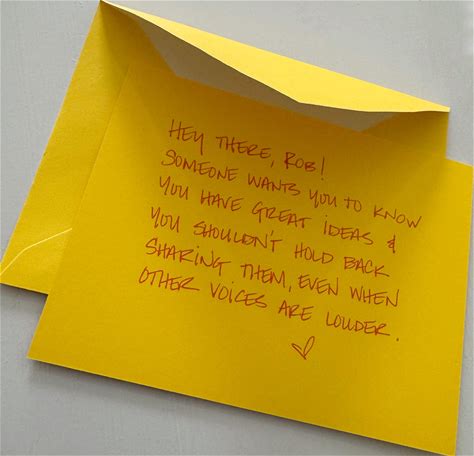 HEY THERE, ROB!
SOMEONE WANTS YOU TO KNOW
YOU HAVE GREAT IDEAS &
YOU SHOULDN'T HOLD BACK
SHARING THEM, EVEN WHEN
OTHER VOICES ARE LOUDER.